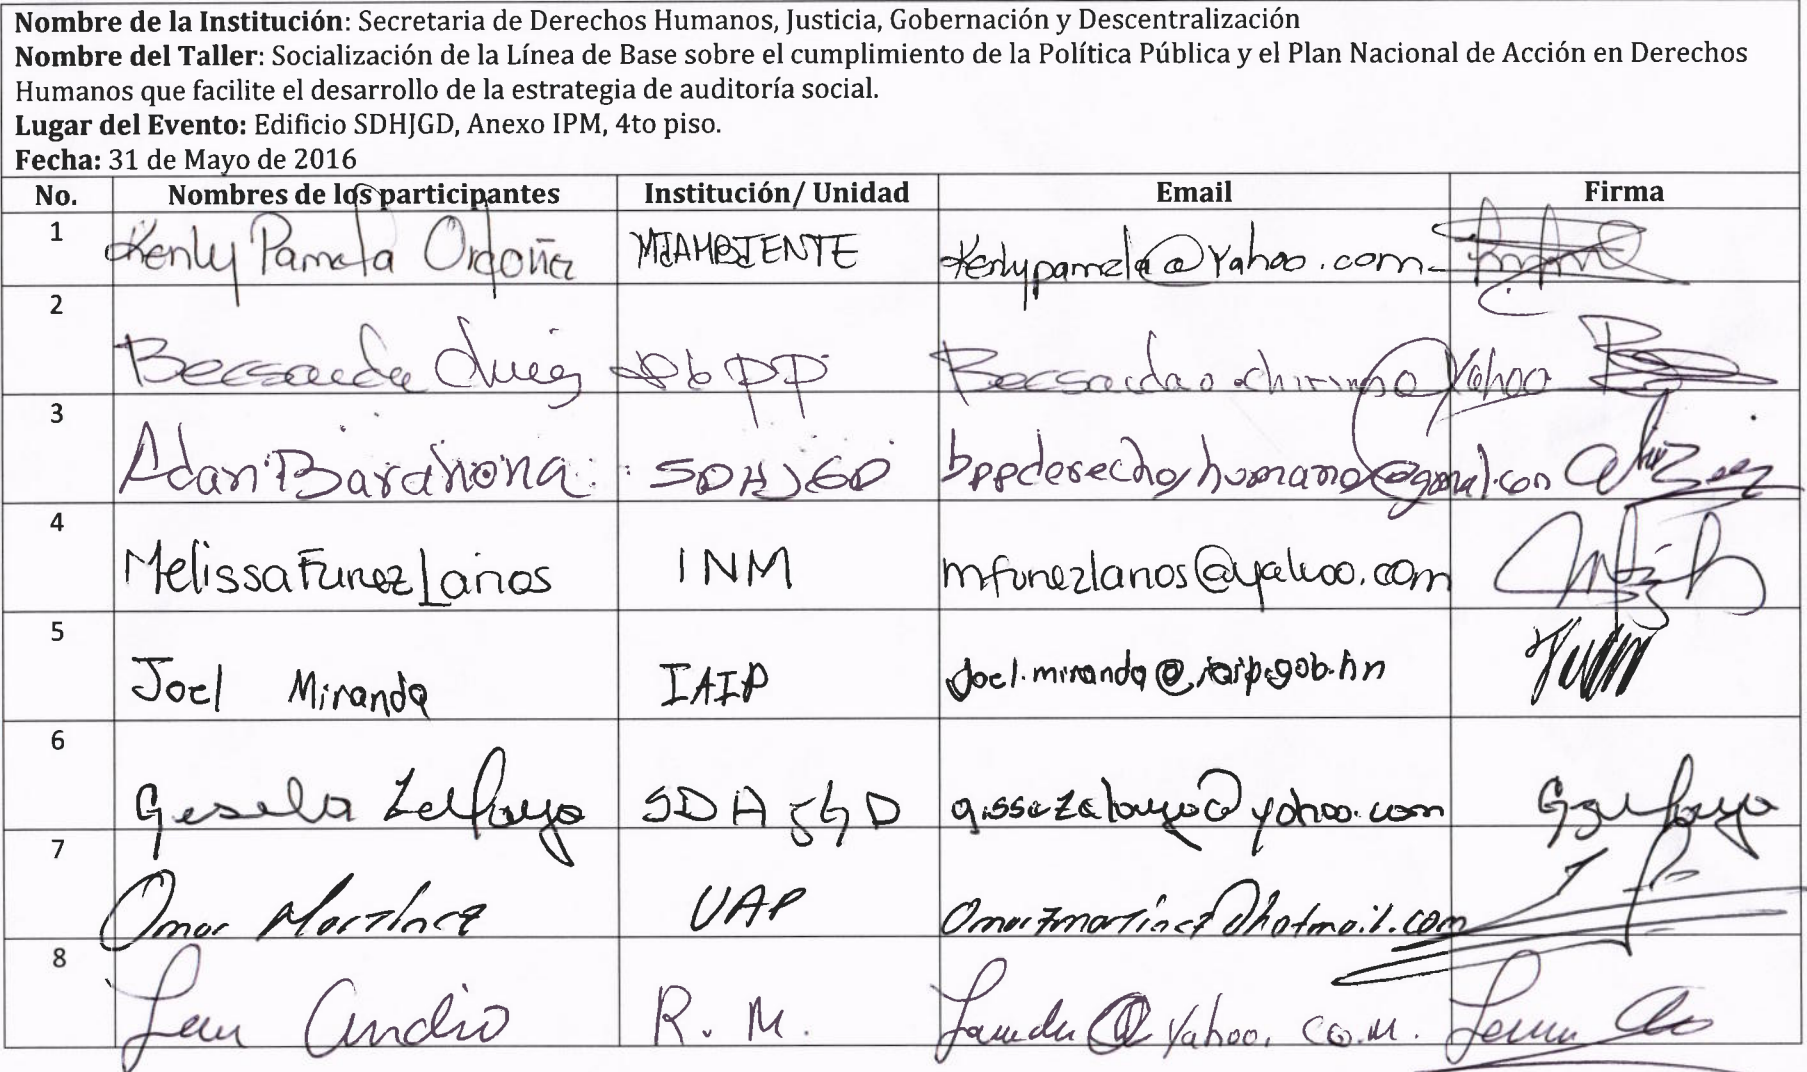 Nombre de la Institución: Secretaria de Derechos Humanos, Justicia, Gobernación y Descentralización
Nombre del Taller: Socialización de la Línea de Base sobre el cumplimiento de la Política Pública y el Plan Nacional de Acción en Derechos
Humanos que facilite el desarrollo de la estrategia de auditoría social.
Lugar del Evento: Edificio SDHJGD, Anexo IPM, 4to piso.
Fecha: 31 de Mayo de 2016
No. Nombres de los participantes Institución/ Unidad Email Firma
1 Kenly Pamela Ordoñez MIAMBIENTE Kenlypamela@Yahoo.com
2 PP
3 Adan Barahona SDHJGD
4 Melissa Funez Lanos INM mfunezlanos@yahoo.com
5 Joel Miranda IAIP Joel.miranda@iaip.gob.hn
6 Gesela Zelaya SDHJGD
7 Omar Martínez UAP
8 R. M.